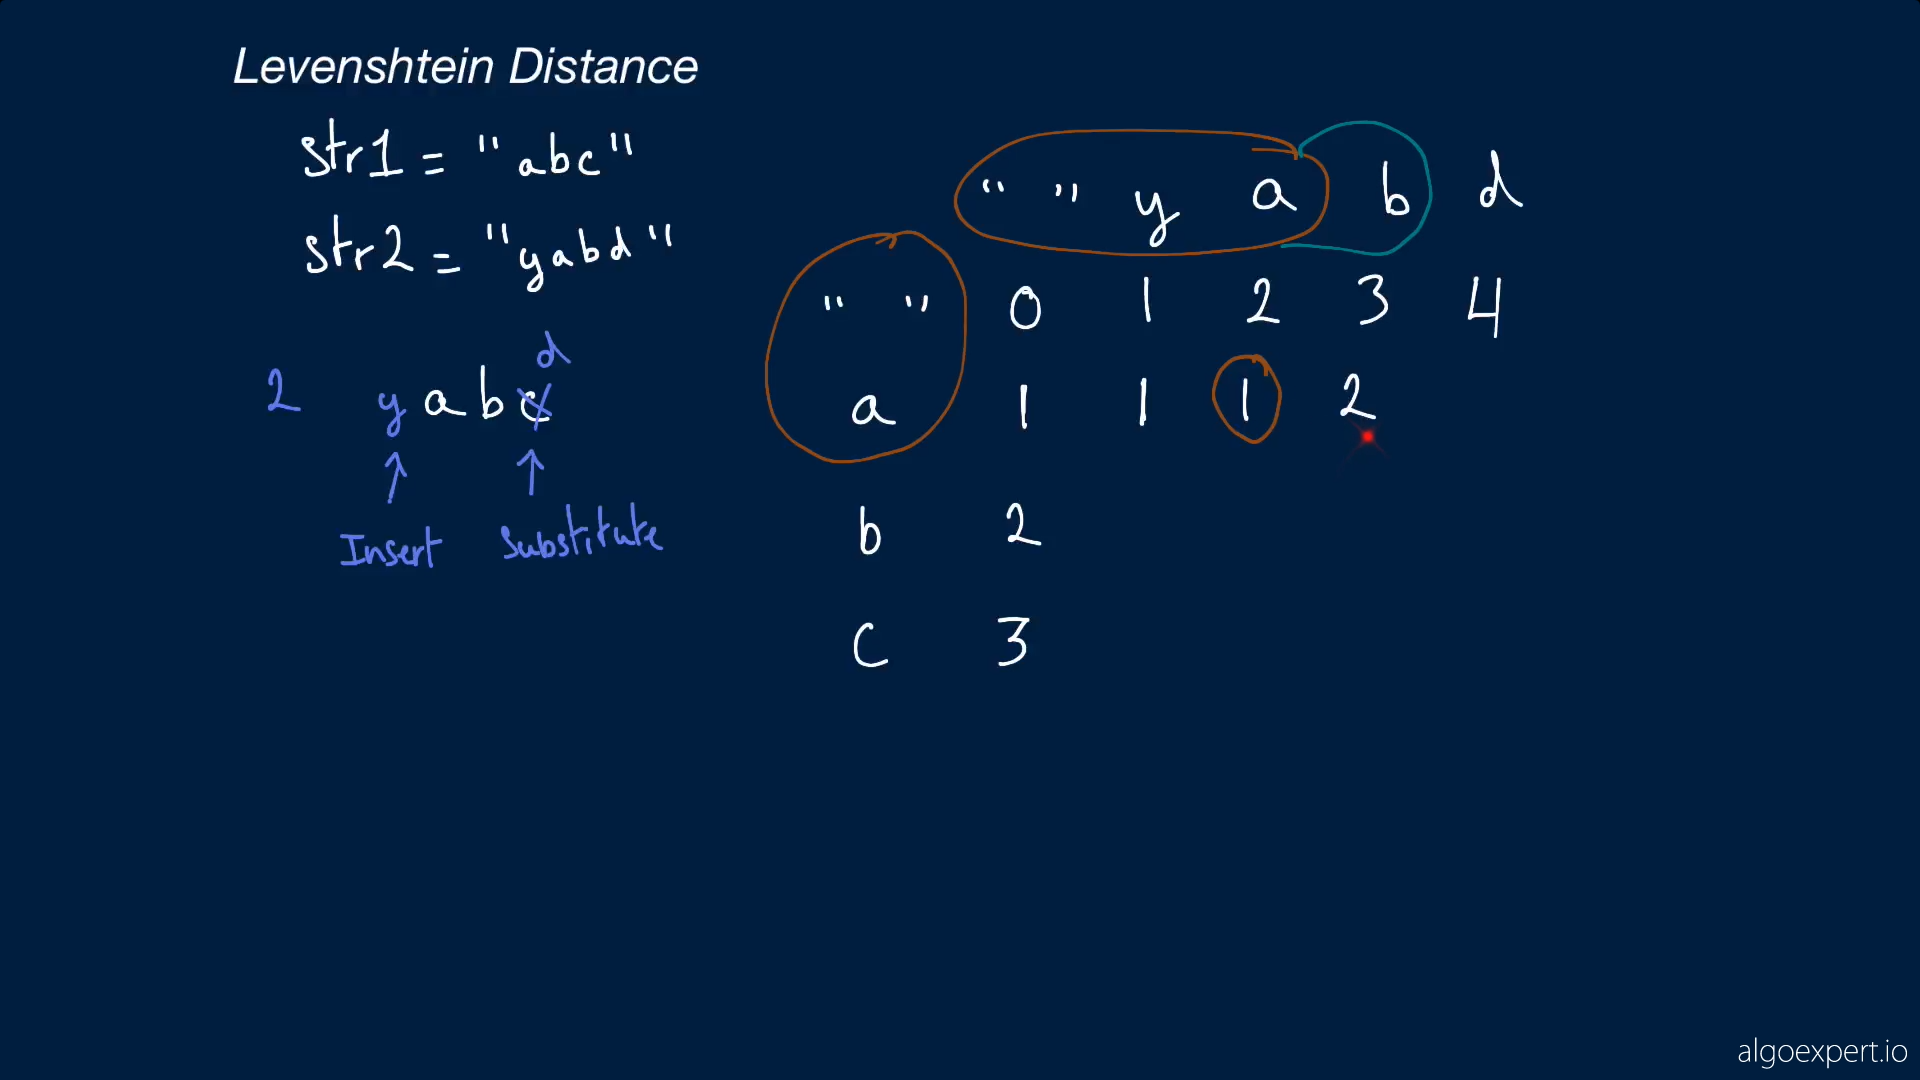 Levenshtein Distance
str1 = "abc"
str2 = "yabd"
d
2 y a b c
Insert Substitute
" " y a b d
" " 0 1 2 3 4
a 1 1 1 2
b 2
c 3
algoexpert.io